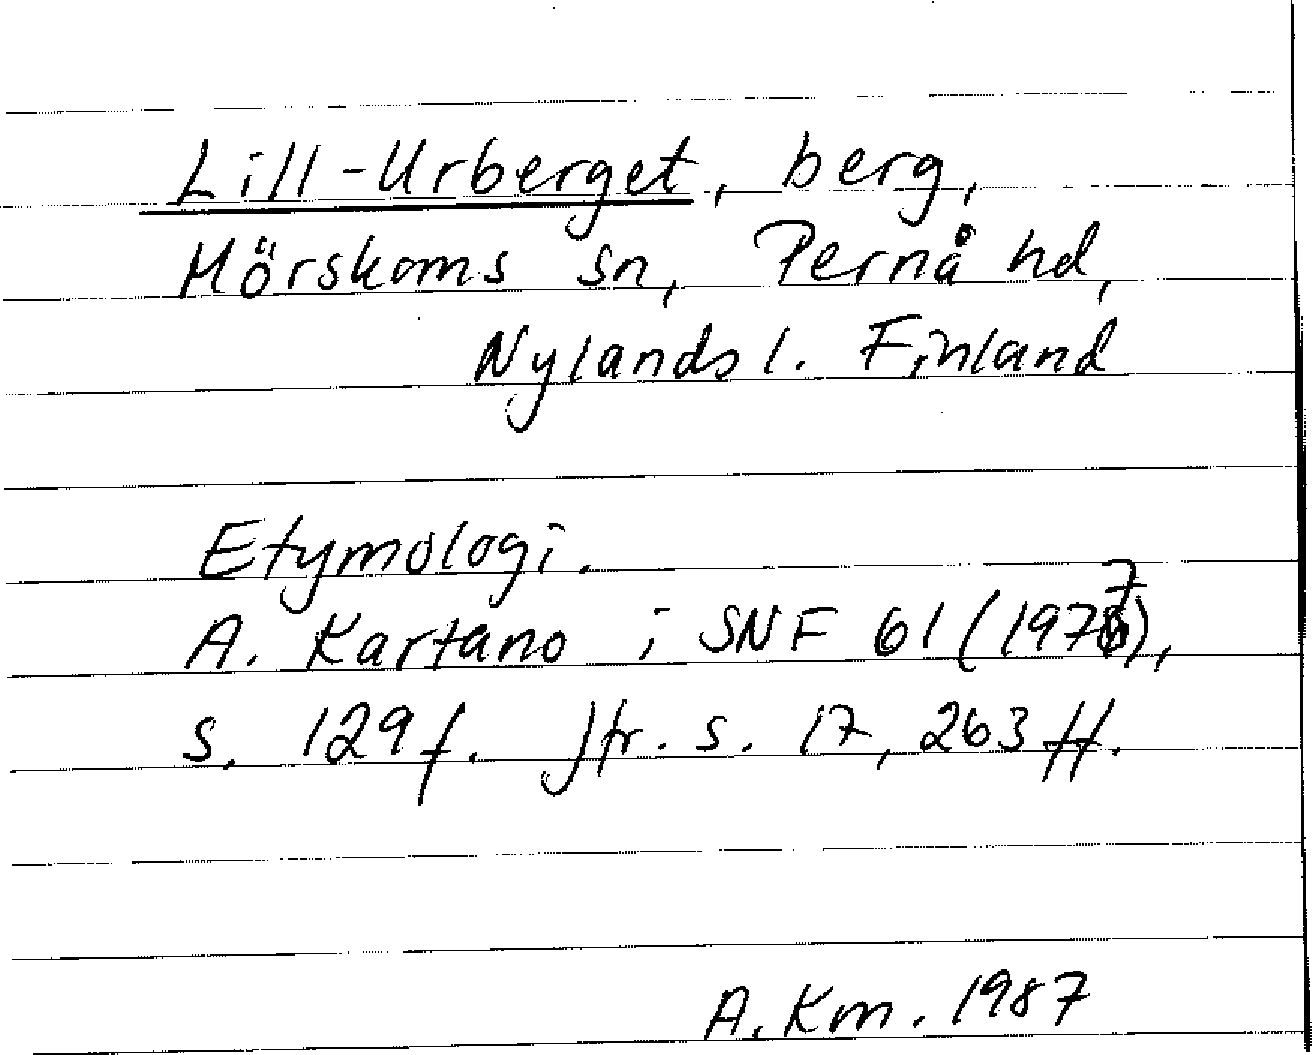 Lill-Urberget, berg,
Mörskoms sn, Pernå hd,
Nylands l. Finland
Etymologi.
A. Kartano i SNF 61 (1977),
s. 129 f. Jfr. s. 17, 263 ff.
A. Km. 1987